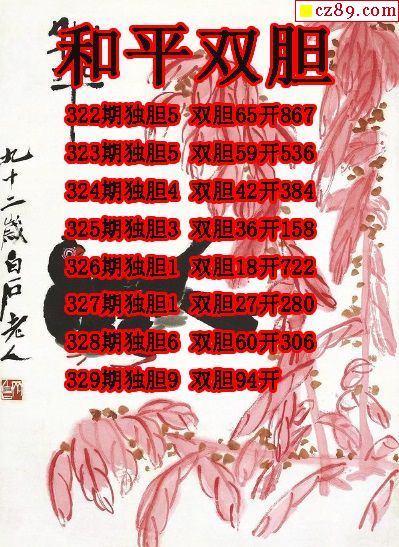 cz89.com
和平双胆
322期独胆5 双胆65开867
323期独胆5 双胆59开536
324期独胆4 双胆42开384
325期独胆3 双胆36开158
326期独胆1 双胆18开722
327期独胆1 双胆27开280
328期独胆6 双胆60开306
329期独胆9 双胆94开
九十二岁白石老人